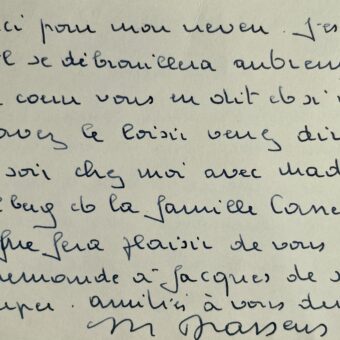 ci pour mon neveu. J'es
l se débrouillera autrem
cœur vous en dit et si
avez le loisir venez din
soir chez moi avec Mad
berg et la famille Carre
que fera plaisir de vous
demande à Jacques de s
uper. amitiés à vous deu